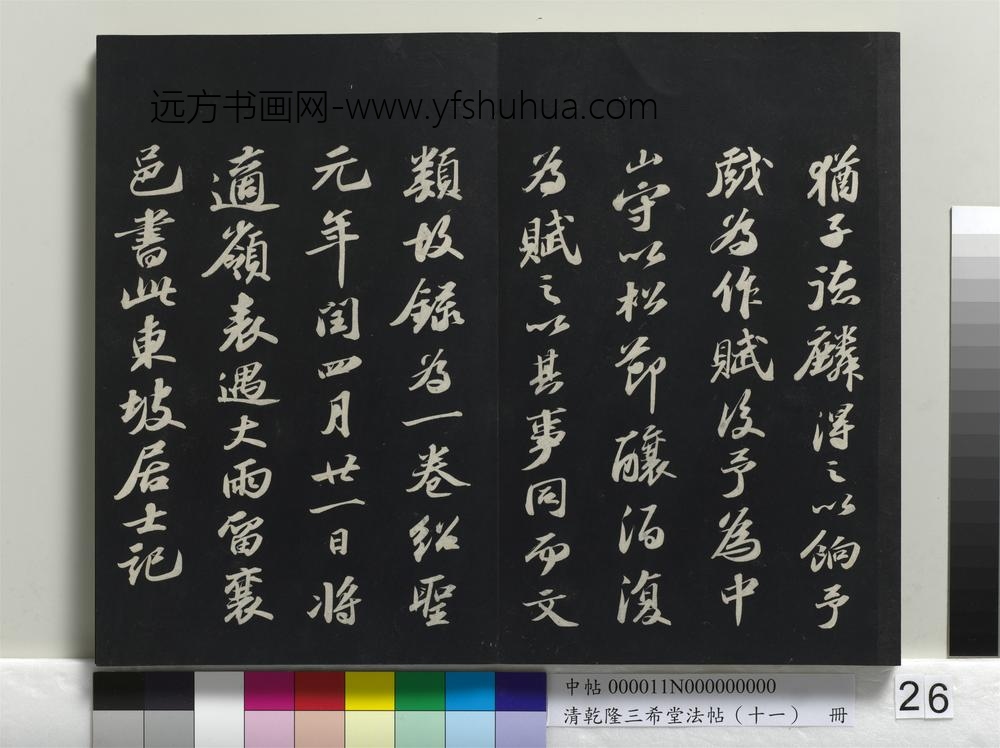 远方书画网-www.yfshuhua.com
猶子德麟得之以餉予
戲為作賦後予為中
山守以松節釀酒復
為賦之以其事同而文
類故錄為一卷紹聖
元年閏四月廿一日將
適嶺表遇大雨留襄
邑書此東坡居士記
中帖 000011N000000000
清乾隆三希堂法帖（十一） 冊
26